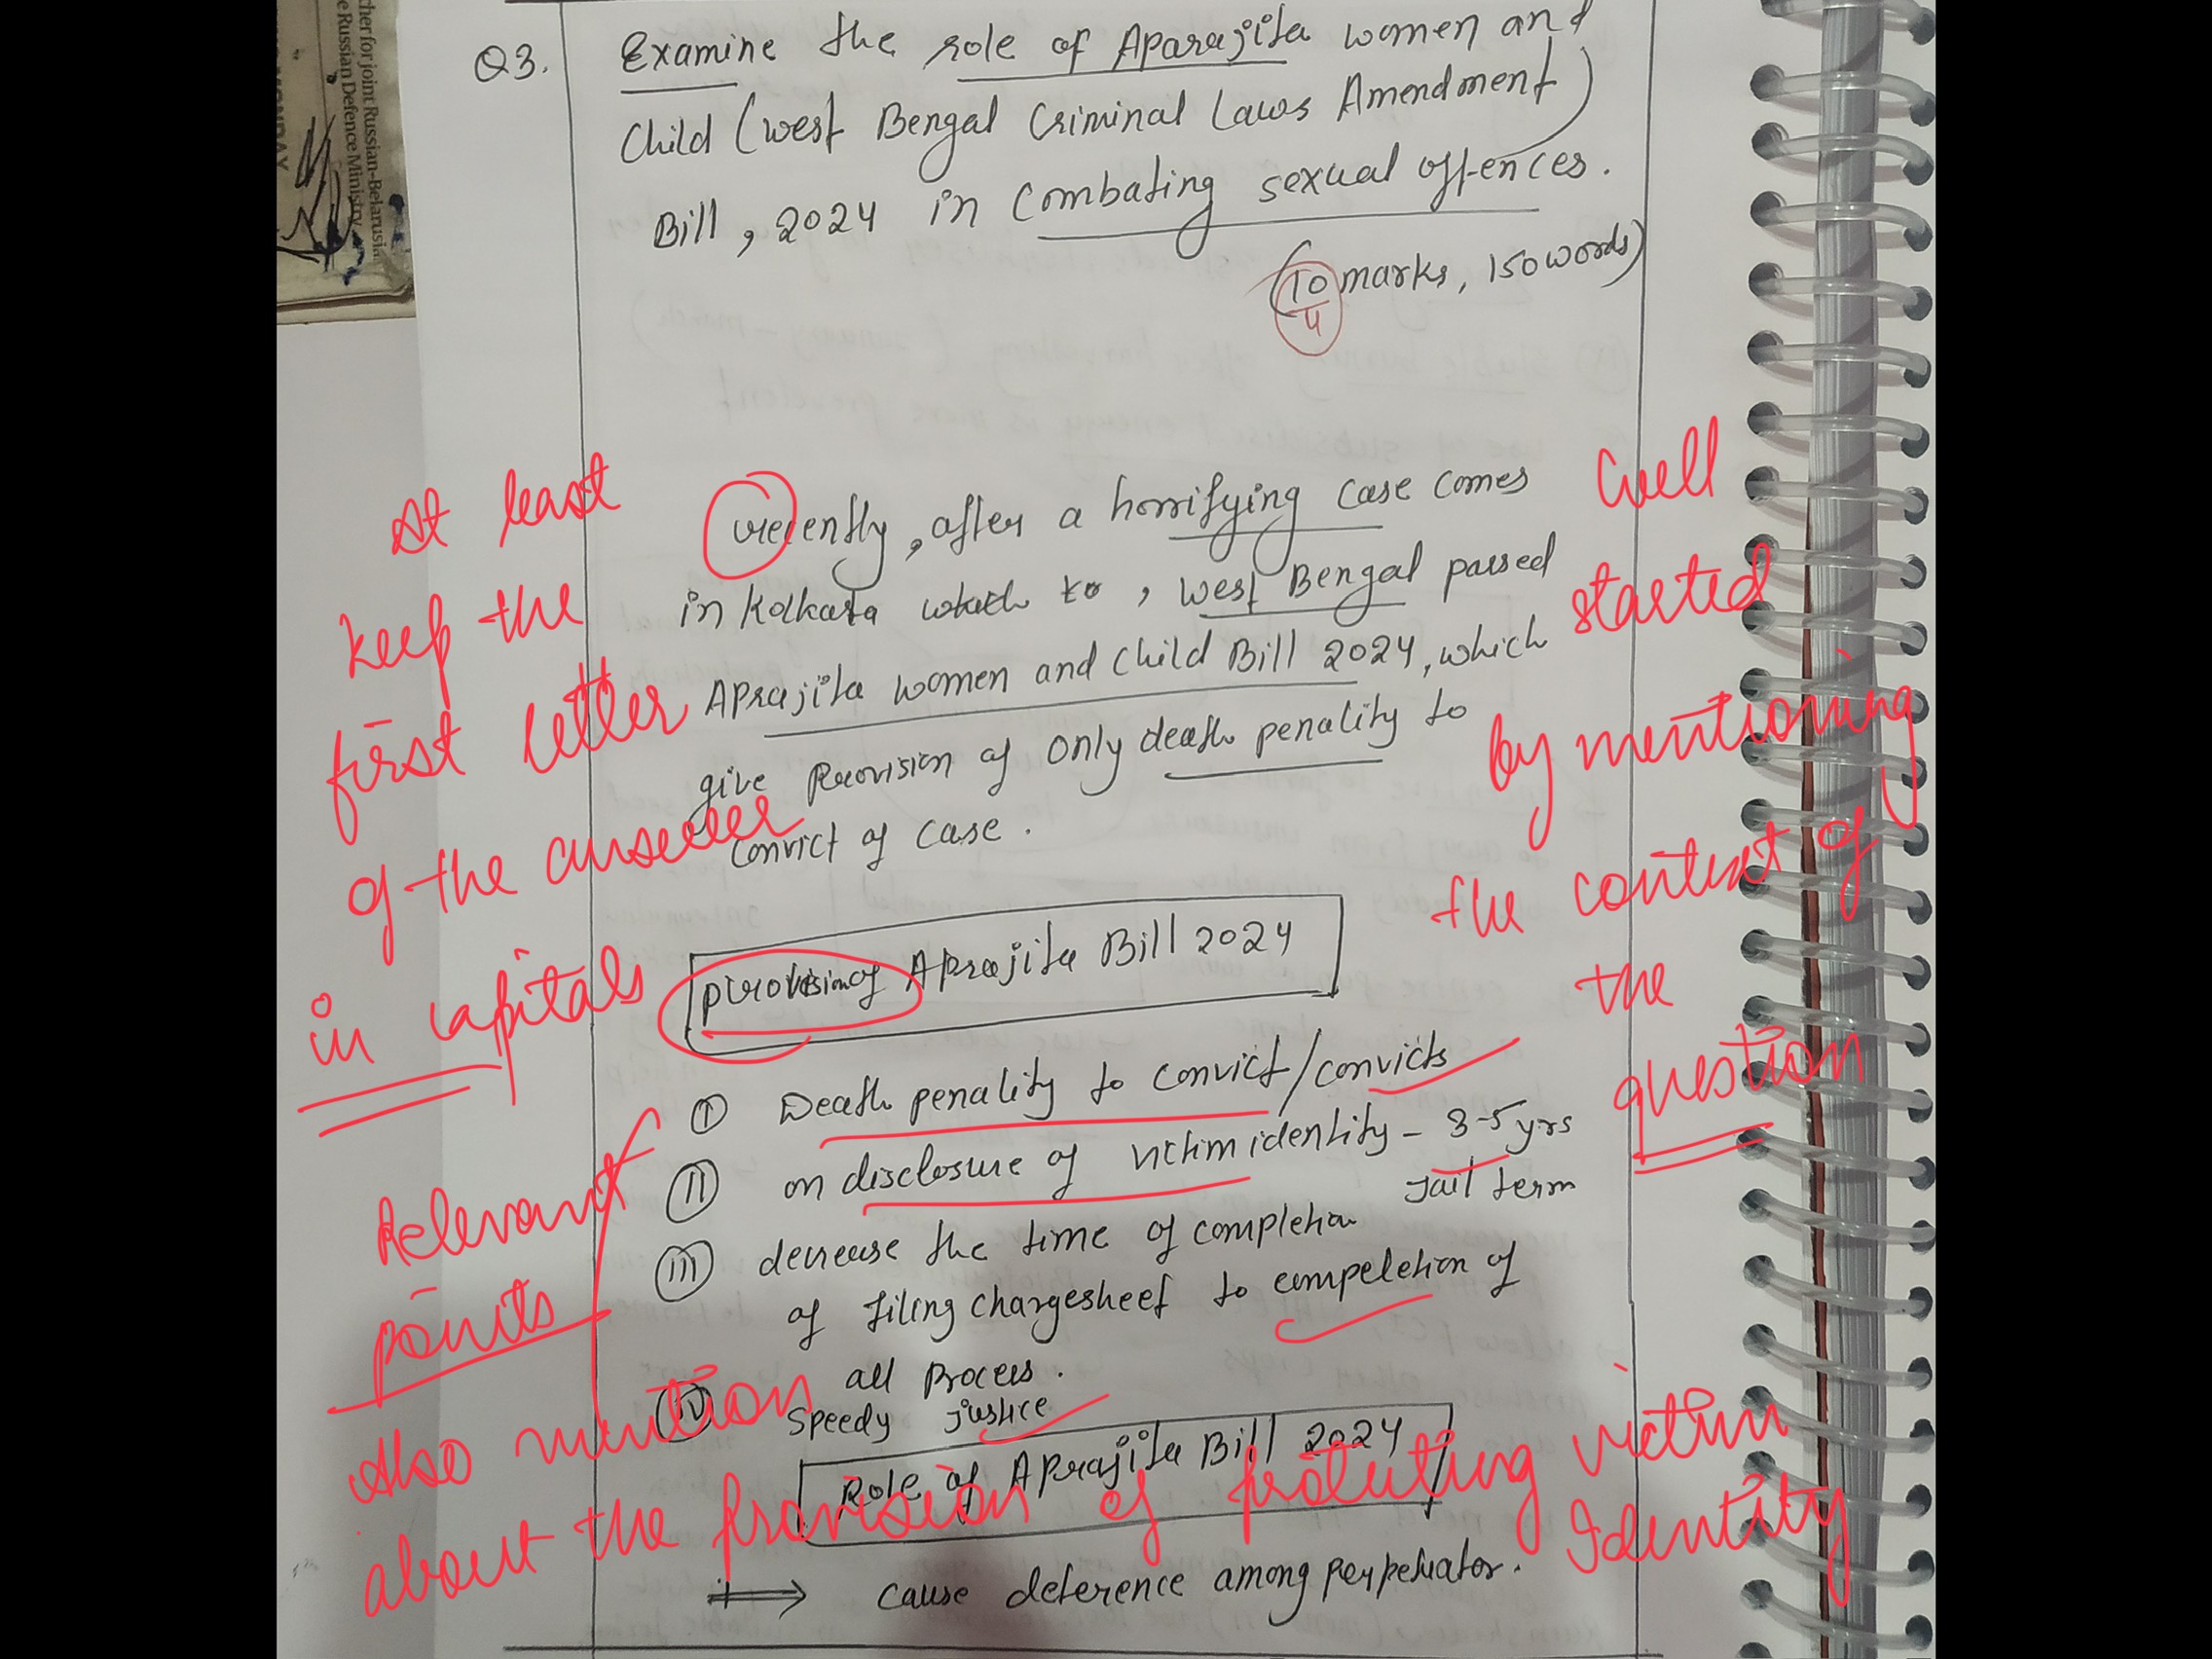 cher for joint Russian-Belarusia
e Russian Defence Ministry
Q3. Examine the role of Aparajita women and
Child (west Bengal Criminal Laws Amendment)
Bill, 2024 in Combating sexual offences.
(10 marks, 150 words)
4
recently, after a horrifying case comes
in Kolkata , West Bengal passed
Aprajita women and child Bill 2024, which
give Provision of only death penality to
convict of case.
At least
keep the
first letter
of the answer
in capitals
Well
started
by mentioning
the context of
the
question
provision of Aprajita Bill 2024
(I) Death penality to convict/convicts
(II) on disclosure of victim identity - 3-5 yrs
Jail term
(III) decrease the time of completion
of filing chargesheet to compeletion of
all Process.
(IV) Speedy justice
Relevant
points
Also mention
about the provision of protecting victim
Identity
Role of Aprajita Bill 2024
⟹ cause deterence among perpetuator.